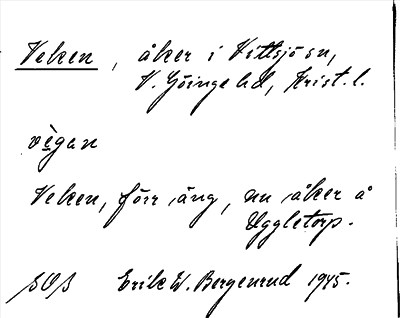 Veken, åker i Vittsjö sn,
V. Göinge hd, Krist. l.
vègan
Veken, förr äng, nu åker å
Uggletorp.
SOß Erik W. Bergenrud 1945.